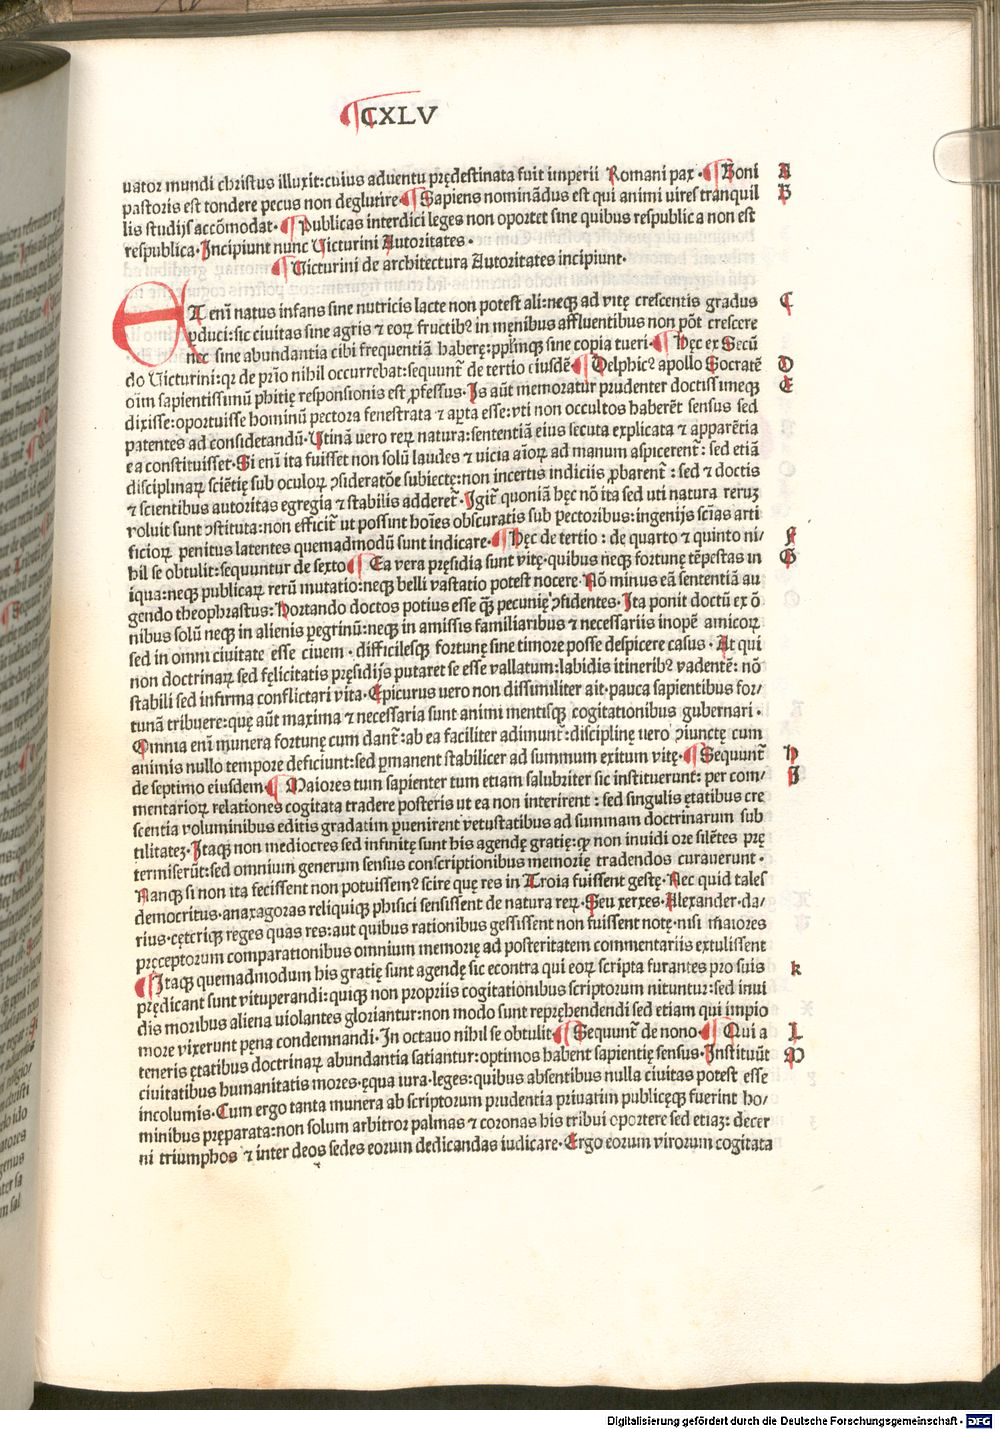 CXLV
uator mundi christus illuxit:cuius aduentu prędestinata fuit imperii Romani pax. ¶ Boni A
pastoris est tondere pecus non deglutire. ¶ Sapiens nominādus est qui animi uires tranquil B
lis studijs accōmodat. ¶ Publicas interdici leges non oportet sine quibus respublica non est
respublica. Incipiunt nunc Uicturini Autoritates.
¶ Uicturini de architectura Autoritates incipiunt.
AT enī natus infans sine nutricis lacte non potest ali:neqꝫ ad vitę crescentis gradus C
ꝓduci:sic ciuitas sine agris ⁊ eoꝝ fructibꝰ in męnibus affluentibus non pōt crescere
nec sine abundantia cibi frequentiā haberę:pplīmqꝫ sine copia tueri. ¶ Hęc ex Secū
do Uicturini:qꝛ de prīo nihil occurrebat:sequunt̄ de tertio eiusdē ¶ Delphicꝰ apollo Socratē D
oīm sapientissimū phitię responsionis est ꝓfessus. Is aūt memoratur prudenter doctissimeqꝫ E
dixisse:oportuisse hominū pectora fenestrata ⁊ aꝑta esse:vti non occultos haberēt sensus sed
patentes ad considetandū. Utinā uero reꝝ natura:sententiā eius secuta explicata ⁊ apparētia
ea constituisset. Si enī ita fuisset non solū laudes ⁊ uicia aīoꝝ ad manum aspicerent̄: sed etiā
disciplinaꝝ sciētię sub oculoꝝ ↄsideratōe subiectę:non incertis indiciis ꝓbarent̄: sed ⁊ doctis
⁊ scientibus autoritas egregia ⁊ stabilis adderet̄. Igit̄ quoniā hęc nō ita sed uti natura reruz
voluit sunt ↄstituta:non efficit̄ ut possint hoīes obscuratis sub pectoribus:ingenijs scīas arti
ficioꝝ penitus latentes quemadmodū sunt indicare. ¶ Hęc de tertio: de quarto ⁊ quinto ni/ F
hil se obtulit:sequuntur de sexto ¶ Ea vera pręsidia sunt vitę.quibus neqꝫ fortunę tēpestas in G
iqua:neqꝫ publicaꝝ rerū mutatio:neqꝫ belli vastatio potest nocere. Nō minus eā sententiā au
gendo theophrastus: Hortando doctos potius esse q̄ꝫ pecunię ↄfidentes. Ita ponit doctū ex ō
nibus solū neqꝫ in alienis pegrinū:neqꝫ in amissis familiaribus ⁊ necessariis inopē amicoꝝ
sed in omni ciuitate esse ciuem. difficilesqꝫ fortunę sine timore posse despicere casus. At qui
non doctrinaꝝ sed fęlicitatis pręsidijs putaret se esse vallatum:labidis itineribꝰ vadentē: nō
stabili sed infirma conflictari vita. Epicurus uero non dissimiliter ait.pauca sapientibus for/
tunā tribuere:quę aūt maxima ⁊ necessaria sunt animi mentisqꝫ cogitationibus gubernari.
Omnia enī munera fortunę cum dant̄:ab ea faciliter adimunt̄:disciplinę uero ↄiunctę cum
animis nullo tempore deficiunt:sed ꝑmanent stabilicer ad summum exitum vitę. ¶ Sequunt̄ H
de septimo eiusdem. ¶ Maiores tum sapienter tum etiam salubriter sic instituerunt: per com/ J
mentarioꝝ relationes cogitata tradere posteris ut ea non interirent: sed singulis ętatibus cre
scentia voluminibus editis gradatim puenirent vetustatibus ad summam doctrinarum sub
tilitatez. Itaqꝫ non mediocres sed infinitę sunt his agendę gratię:ꝙ non inuidi ore silētes prę
termiserūt:sed omnium generum sensus conscriptionibus memorię tradendos curauerunt.
Nanqꝫ si non ita fecissent non potuissemꝰ scire quę res in Troia fuissent gestę. Nec quid tales
democritus.anaxagoras reliquiqꝫ phisici sensissent de natura reꝝ. Seu xerxes. Alexander.da/
rius.cęteriqꝫ reges quas res:aut quibus rationibus gessissent non fuissent notę.nisi maiores
pręceptorum comparationibus omnium memorię ad posteritatem commentariis extulissent
¶ Itaqꝫ quemadmodum his gratię sunt agendę sic econtra qui eoꝝ scripta furantes pro suis k
prędicant sunt vituperandi:quiqꝫ non propriis cogitationibus scriptorum nituntur:sed inui
dis moribus aliena uiolantes gloriantur:non modo sunt repręhendendi sed etiam qui impio
more vixerunt pęna condemnandi. In octauo nihil se obtulit. ¶ Sequunt̄ de nono. ¶ Qui a L
teneris ętatibus doctrinaꝝ abundantia satiantur:optimos habent sapientię sensus. Instituūt M
ciuitatibus humanitatis mores.ęqua iura.leges:quibus absentibus nulla ciuitas potest esse
incolumis. Cum ergo tanta munera ab scriptorum prudentia priuatim publicęqꝫ fuerint ho/
minibus pręparata:non solum arbitror palmas ⁊ coronas his tribui oportere sed etiaꝫ: decer
ni triumphos ⁊ inter deos sedes eorum dedicandas iudicare. Ergo eorum virorum cogitata
Digitalisierung gefördert durch die Deutsche Forschungsgemeinschaft - DFG